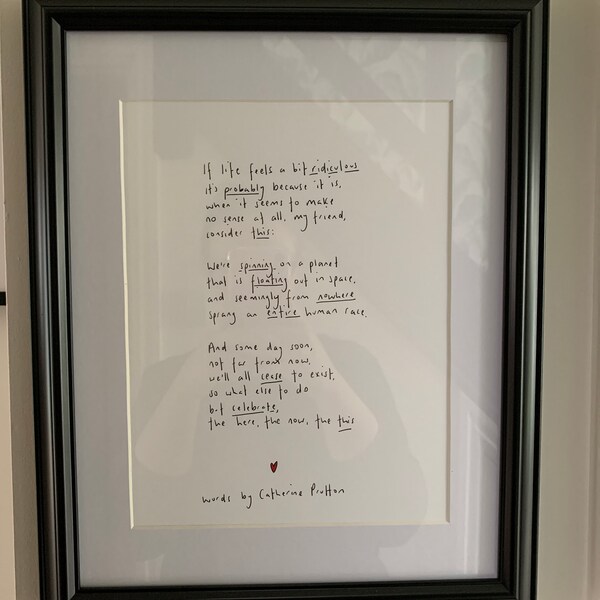 If life feels a bit ridiculous
it's probably because it is,
when it seems to make
no sense at all, my friend,
consider this:
We're spinning on a planet
that is floating out in space,
and seemingly from nowhere
sprang an entire human race.
And some day soon,
not far from now,
we'll all cease to exist,
so what else to do
but celebrate,
the here, the now, the this
words by Catherine Prutton